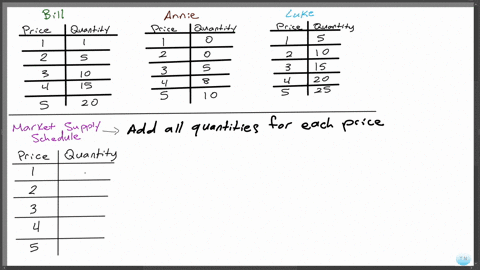 Bill
Price Quantity
1 1
2 5
3 10
4 15
5 20
Annie
Price Quantity
1 0
2 0
3 5
4 8
5 10
Luke
Price Quantity
1 5
2 10
3 15
4 20
5 25
Market Supply Schedule
Add all quantities for each price
Price Quantity
1
2
3
4
5